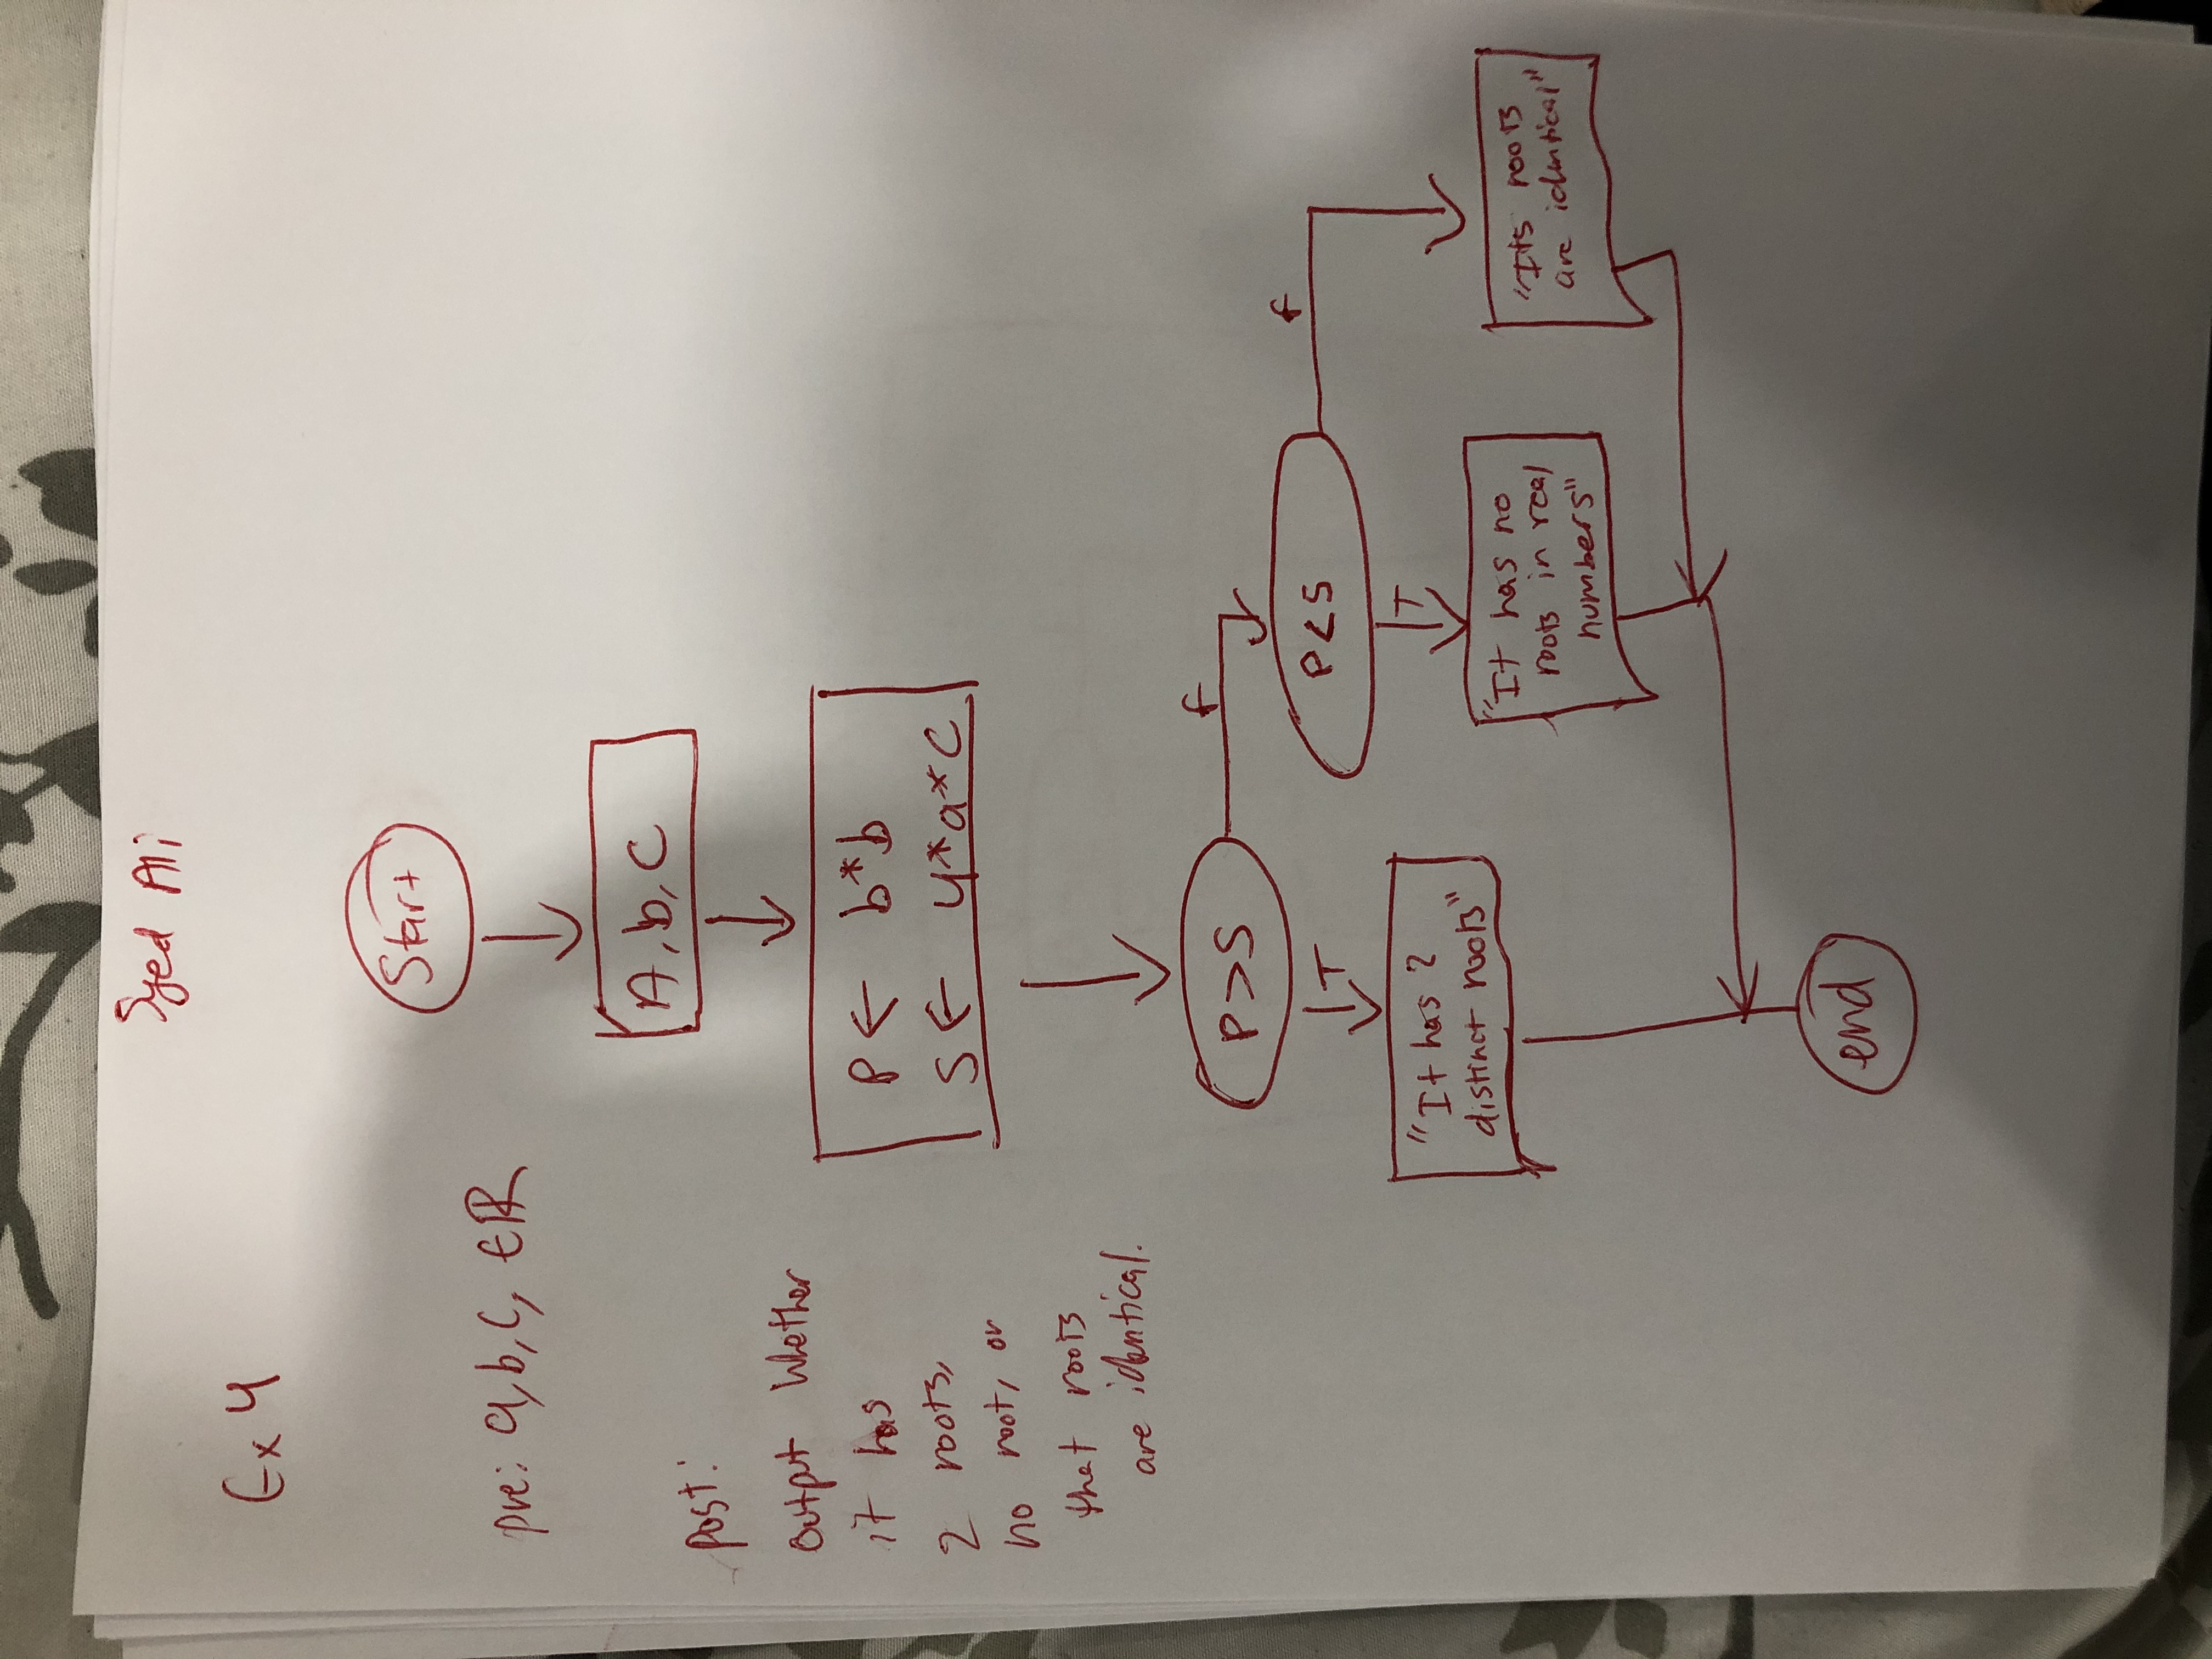 Syed Ali
Ex 4
Start
pre: a, b, c, ∈ℝ
A, b, C
Post:
Output Whether
it has
2 roots,
no root, or
that roots
are identical.
P ← b*b
S ← 4*a*C
P>S
f
T
P<S
f
T
"It has 2
distinct roots"
"It has no
roots in real
numbers"
"Its roots
are identical"
end